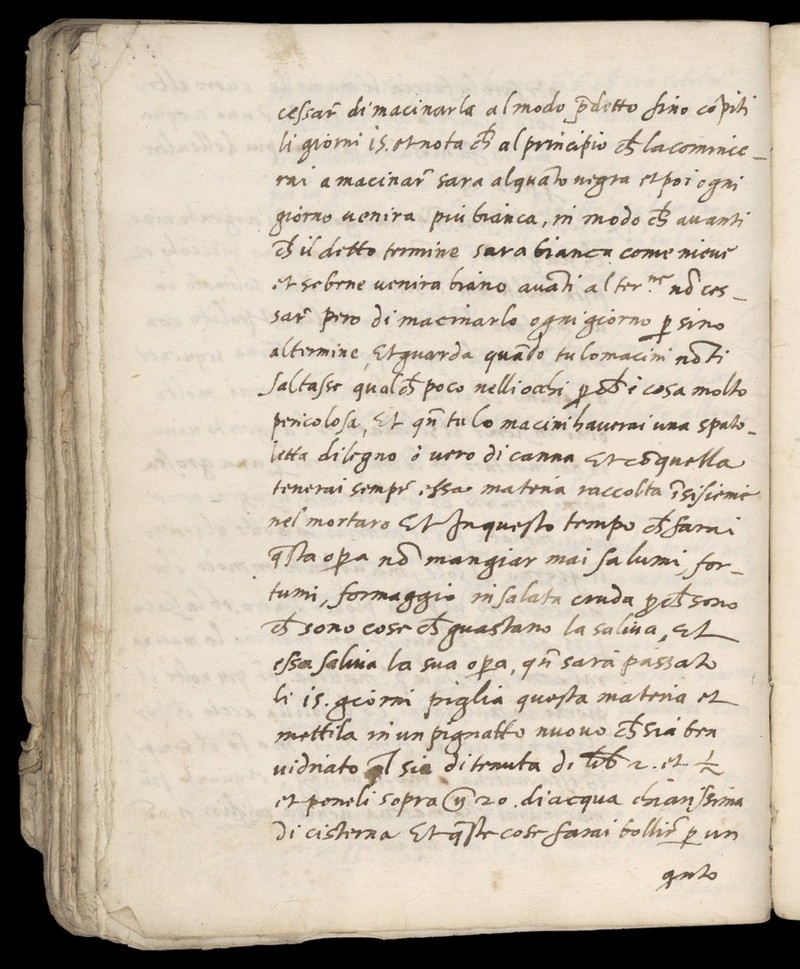 cessar̃ di macinarla al modo p̃detto fino cõpiti
li giorni 15. et nota ch̃ al principio ch̃ la comince_
rai a macinar̃ sara alquãto negra et poi ogni
giorno uenira piu bianca, in modo ch̃ auanti
ch̃ il detto termine sara bianca come nieue
et se bene uenira biãno auãti al ter.ne nõ ces_
sar̃ pero di macinarlo ogni giorno p̱ sino
al termine, Et guarda quãdo tu lo macini nõ ti
saltasse qualch̃ poco nelli occhi p̱ch̃ è cosa molto
pericolosa, Et qñ tu lo macini hauerai una spato_
letta di legno ò uero di canna Et cõ quella
tenerai sempr̃ essa materia raccolta ĩsisieme
nel mortaro Et In questo tempo ch̃ farai
q̃sta op̱a nõ mangiar mai salumi, for_
tumi, formaggio insalata cruda p̱ch̃ sono
ch̃ sono cose ch̃ guastano la saliua, Et
essa saliua la sua op̱a, qñ sarà passato
li 15. giorni piglia questa materia et
mettila in un pignatto nuouo ch̃ sia ben
uidriato q̃l sia di tenuta di lib̃ 2. et ½
et poneli sopra 20. di acqua chiarissima
di cisterna Et q̃ste cose farai bollir̃ p̱ un
q̃nto